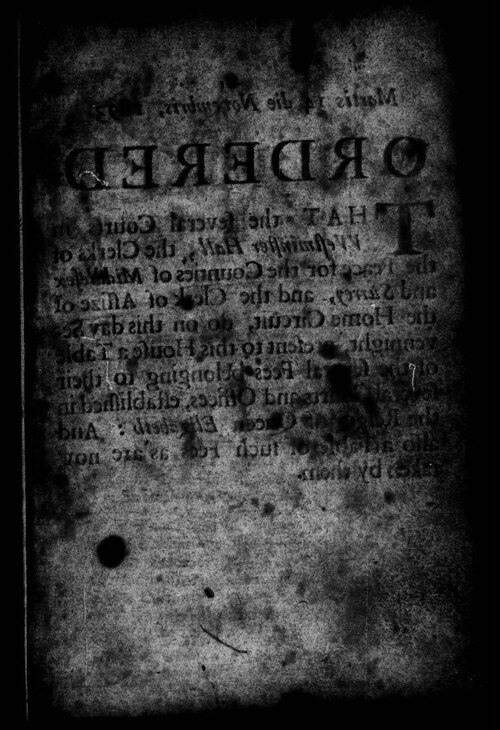 Martis 14 die Novembris, 1693
ORDERED
THAT the ſeveral Courts in
VVeſtminſter Hall, the Clerks of
the Peace for the Counties of Middleſex
and Surrey, and the Clerk of Aſſize of
the Home Circuit, do on this day Se-
vennight, preſent to this Houſe a Table
of the ſeveral Fees belonging to their
ſeveral Courts and Offices, eſtabliſhed in
the Reign of Queen Elizabeth: And
alſo a Table of ſuch Fees as are now
taken by them.